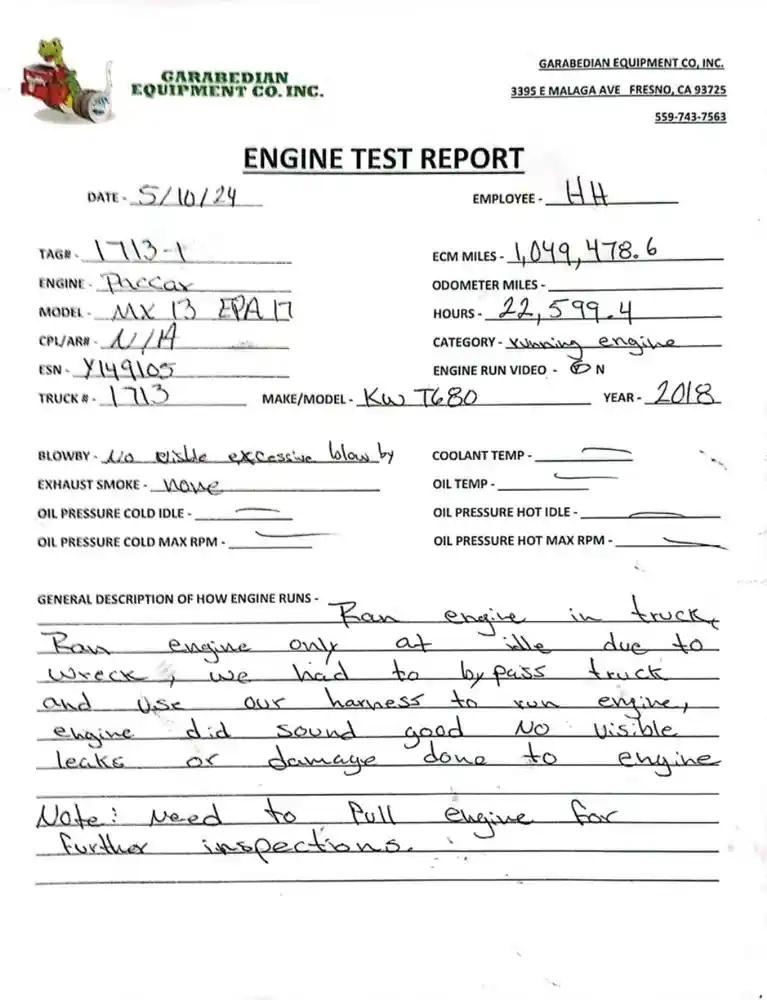 GARABEDIAN
EQUIPMENT CO. INC.
GARABEDIAN EQUIPMENT CO, INC.
3395 E MALAGA AVE FRESNO, CA 93725
559-743-7563
ENGINE TEST REPORT
DATE - 5/10/24 EMPLOYEE - HH
TAG# - 1713-1 ECM MILES - 1,049,478.6
ENGINE - Paccar ODOMETER MILES -
MODEL - MX 13 EPA 17 HOURS - 22,599.4
CPL/AR# - N/A CATEGORY - running engine
ESN - Y149105 ENGINE RUN VIDEO - Y N
TRUCK # - 1713 MAKE/MODEL - KW T680 YEAR - 2018
BLOWBY - No visible excessive blow by COOLANT TEMP - —
EXHAUST SMOKE - none OIL TEMP - —
OIL PRESSURE COLD IDLE - — OIL PRESSURE HOT IDLE - —
OIL PRESSURE COLD MAX RPM - — OIL PRESSURE HOT MAX RPM - —
GENERAL DESCRIPTION OF HOW ENGINE RUNS - Ran engine in truck,
Ran engine only at idle due to
wreck, we had to bypass truck
and use our harness to run engine,
engine did sound good No visible
leaks or damage done to engine
Note: Need to Pull engine for
further inspections.